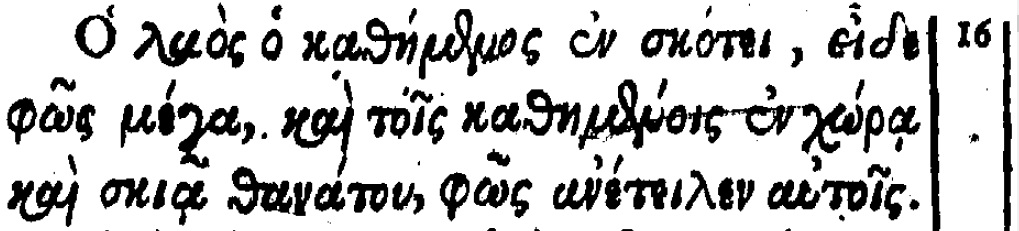 Ὁ λαὸς ὁ καθήμενος ἐν σκότει, εἶδε 16
φῶς μέγα, καὶ τοῖς καθημένοις ἐν χώρᾳ
καὶ σκιᾷ θανάτου, φῶς ἀνέτειλεν αὐτοῖς.